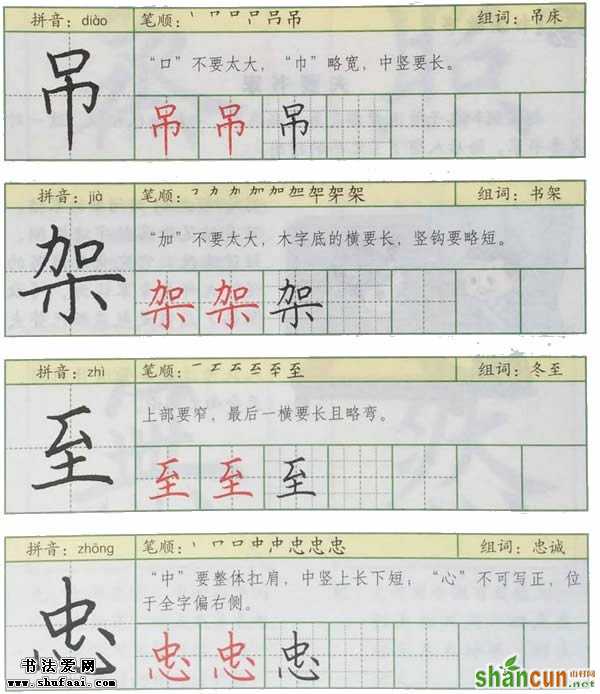 拼音：diào 笔顺：丨 冂 口 吊 吊 吊 组词：吊床
吊
“口”不要太大，“巾”略宽，中竖要长。
吊 吊 吊
拼音：jià 笔顺： 架 组词：书架
架
“加”不要太大，木字底的横要长，竖钩要略短。
架 架 架
拼音：zhì 笔顺： 至 组词：冬至
至
上部要窄，最后一横要长且略弯。
至 至 至
拼音：zhōng 笔顺： 忠 组词：忠诚
忠
“中”要整体扛肩，中竖上长下短；“心”不可写正，位
于全字偏右侧。
忠 忠 忠
书法爱网
www.shufaai.com
shancun
山村网
.net